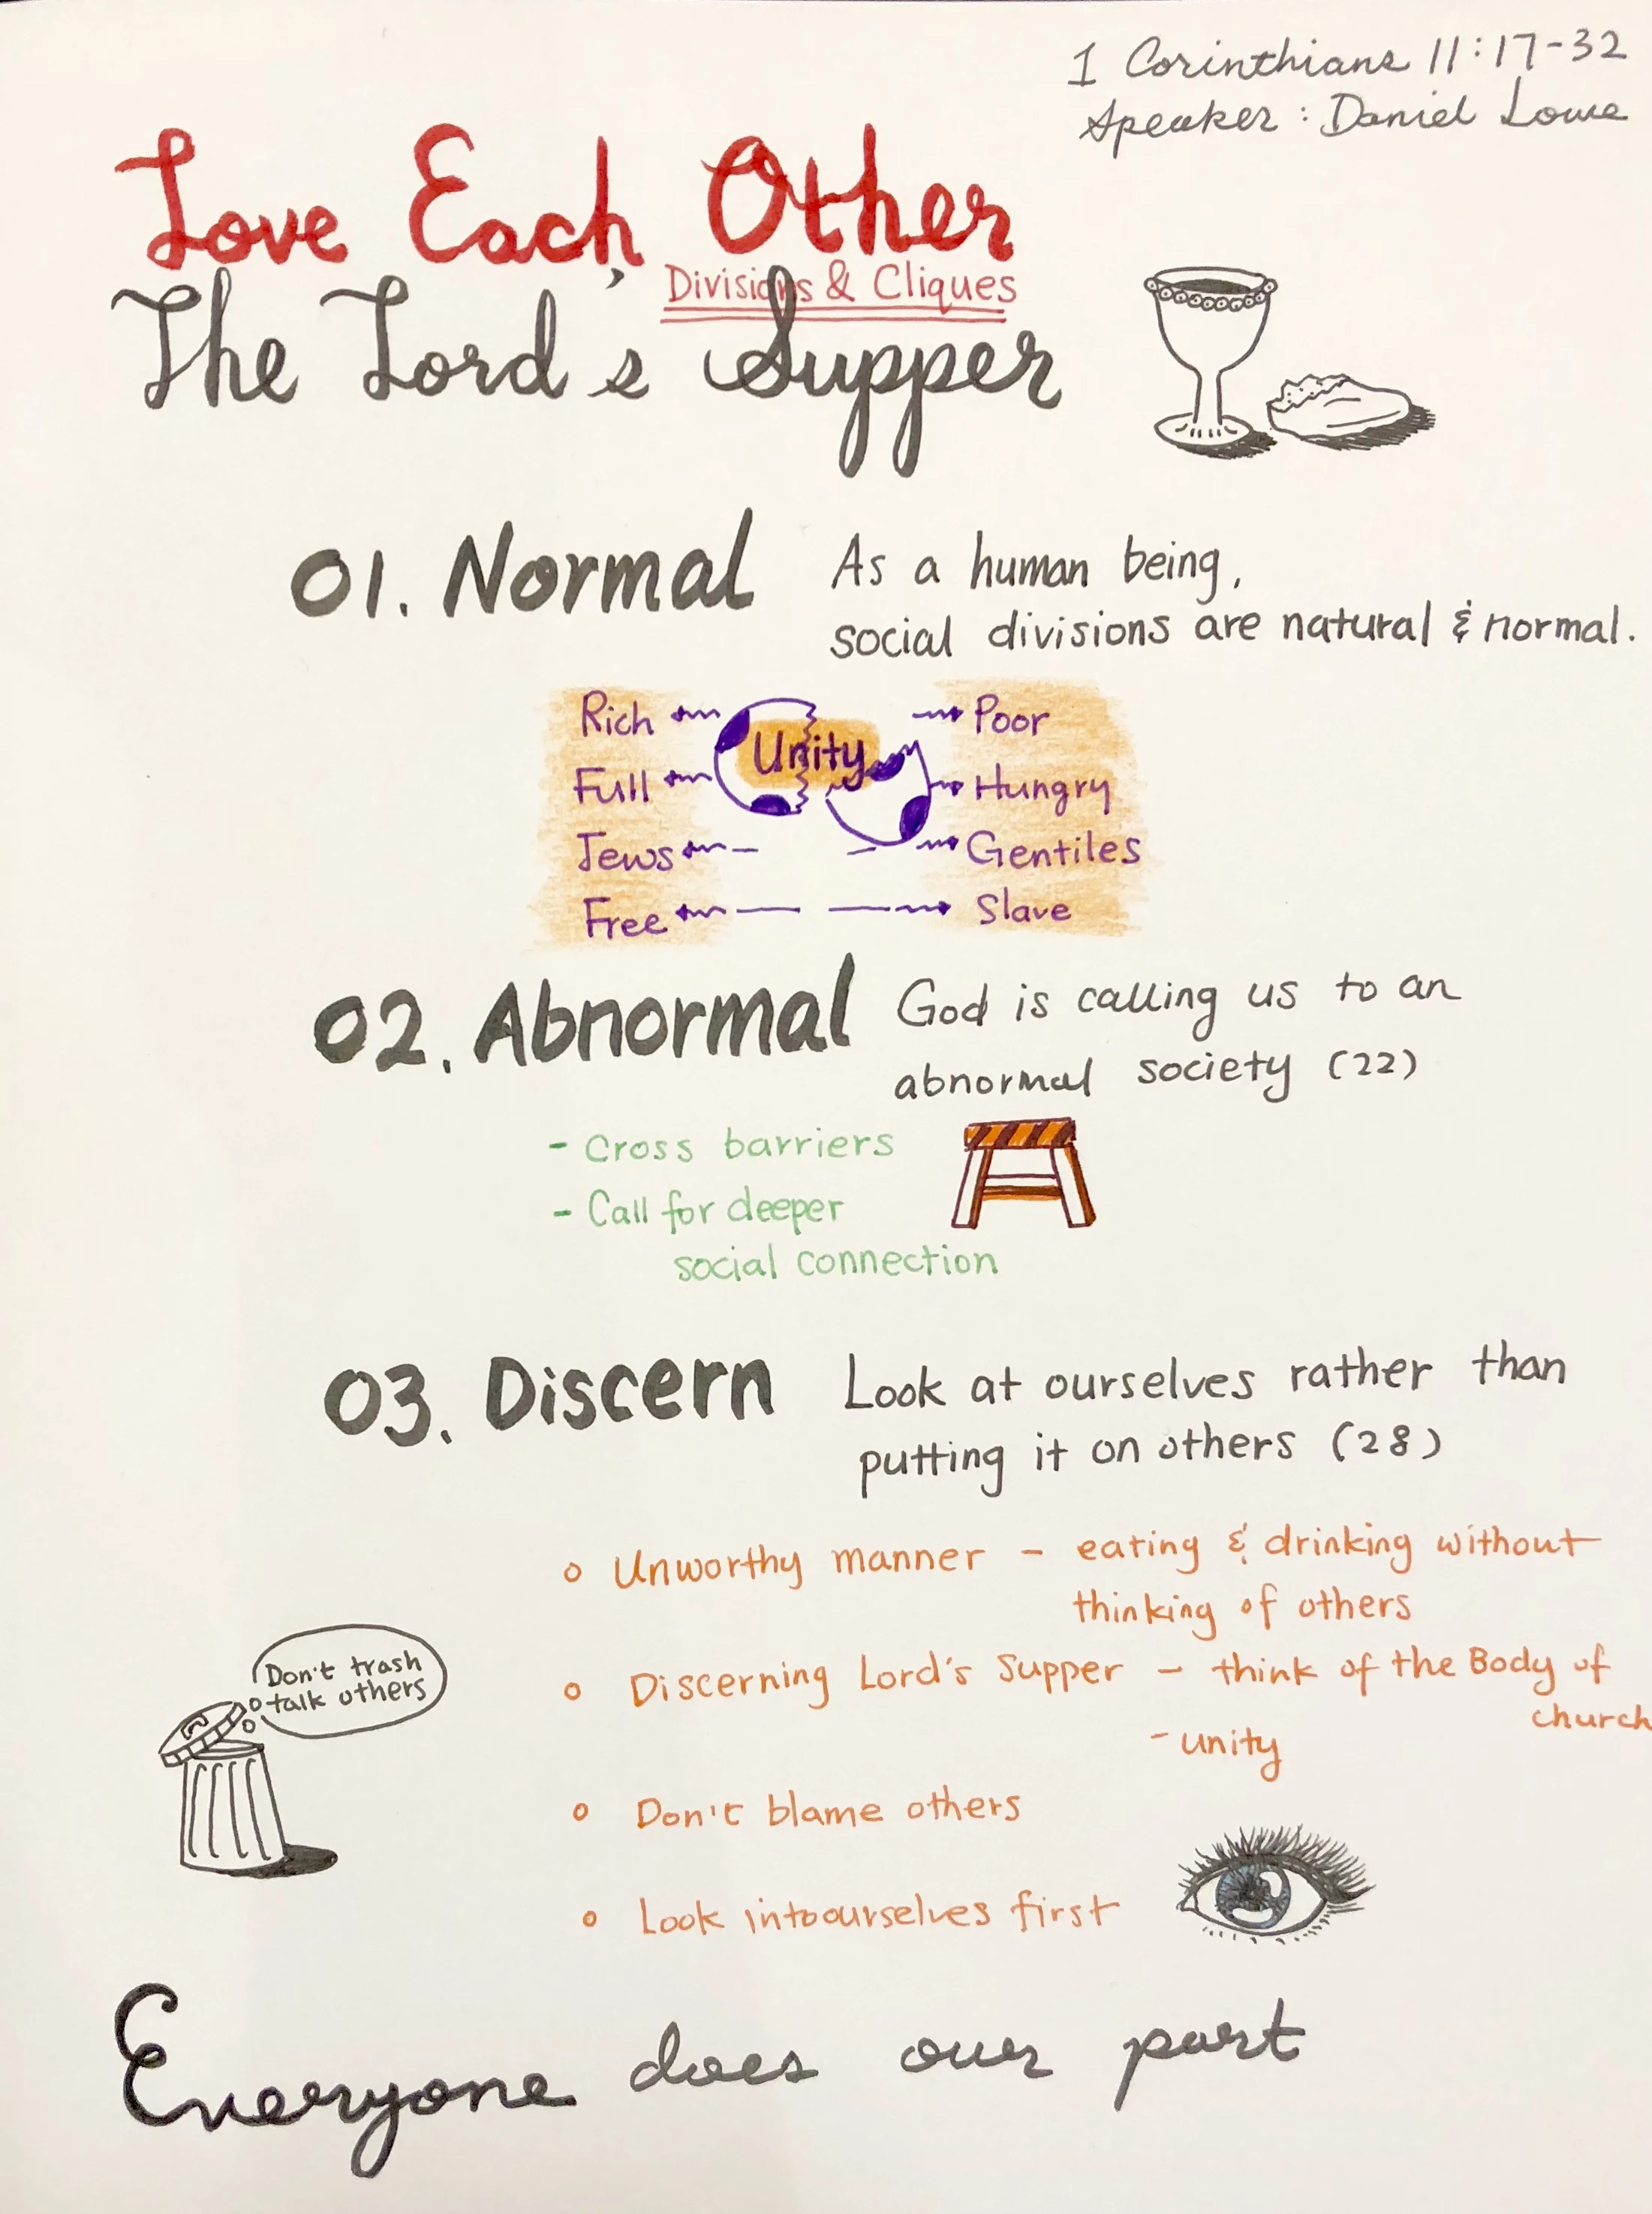 1 Corinthians 11:17-32
Speaker: Daniel Lowe
Love Each Other
Divisions & Cliques
The Lord's Supper
01. Normal
As a human being,
social divisions are natural & normal.
Rich Unity Poor
Full Hungry
Jews Gentiles
Free Slave
02. Abnormal
God is calling us to an
abnormal society (22)
- Cross barriers
- Call for deeper
social connection
03. Discern
Look at ourselves rather than
putting it on others (28)
o Unworthy manner - eating & drinking without
thinking of others
Don't trash
talk others
o Discerning Lord's Supper - think of the Body of
church
- unity
o Don't blame others
o Look into ourselves first
Everyone does our part